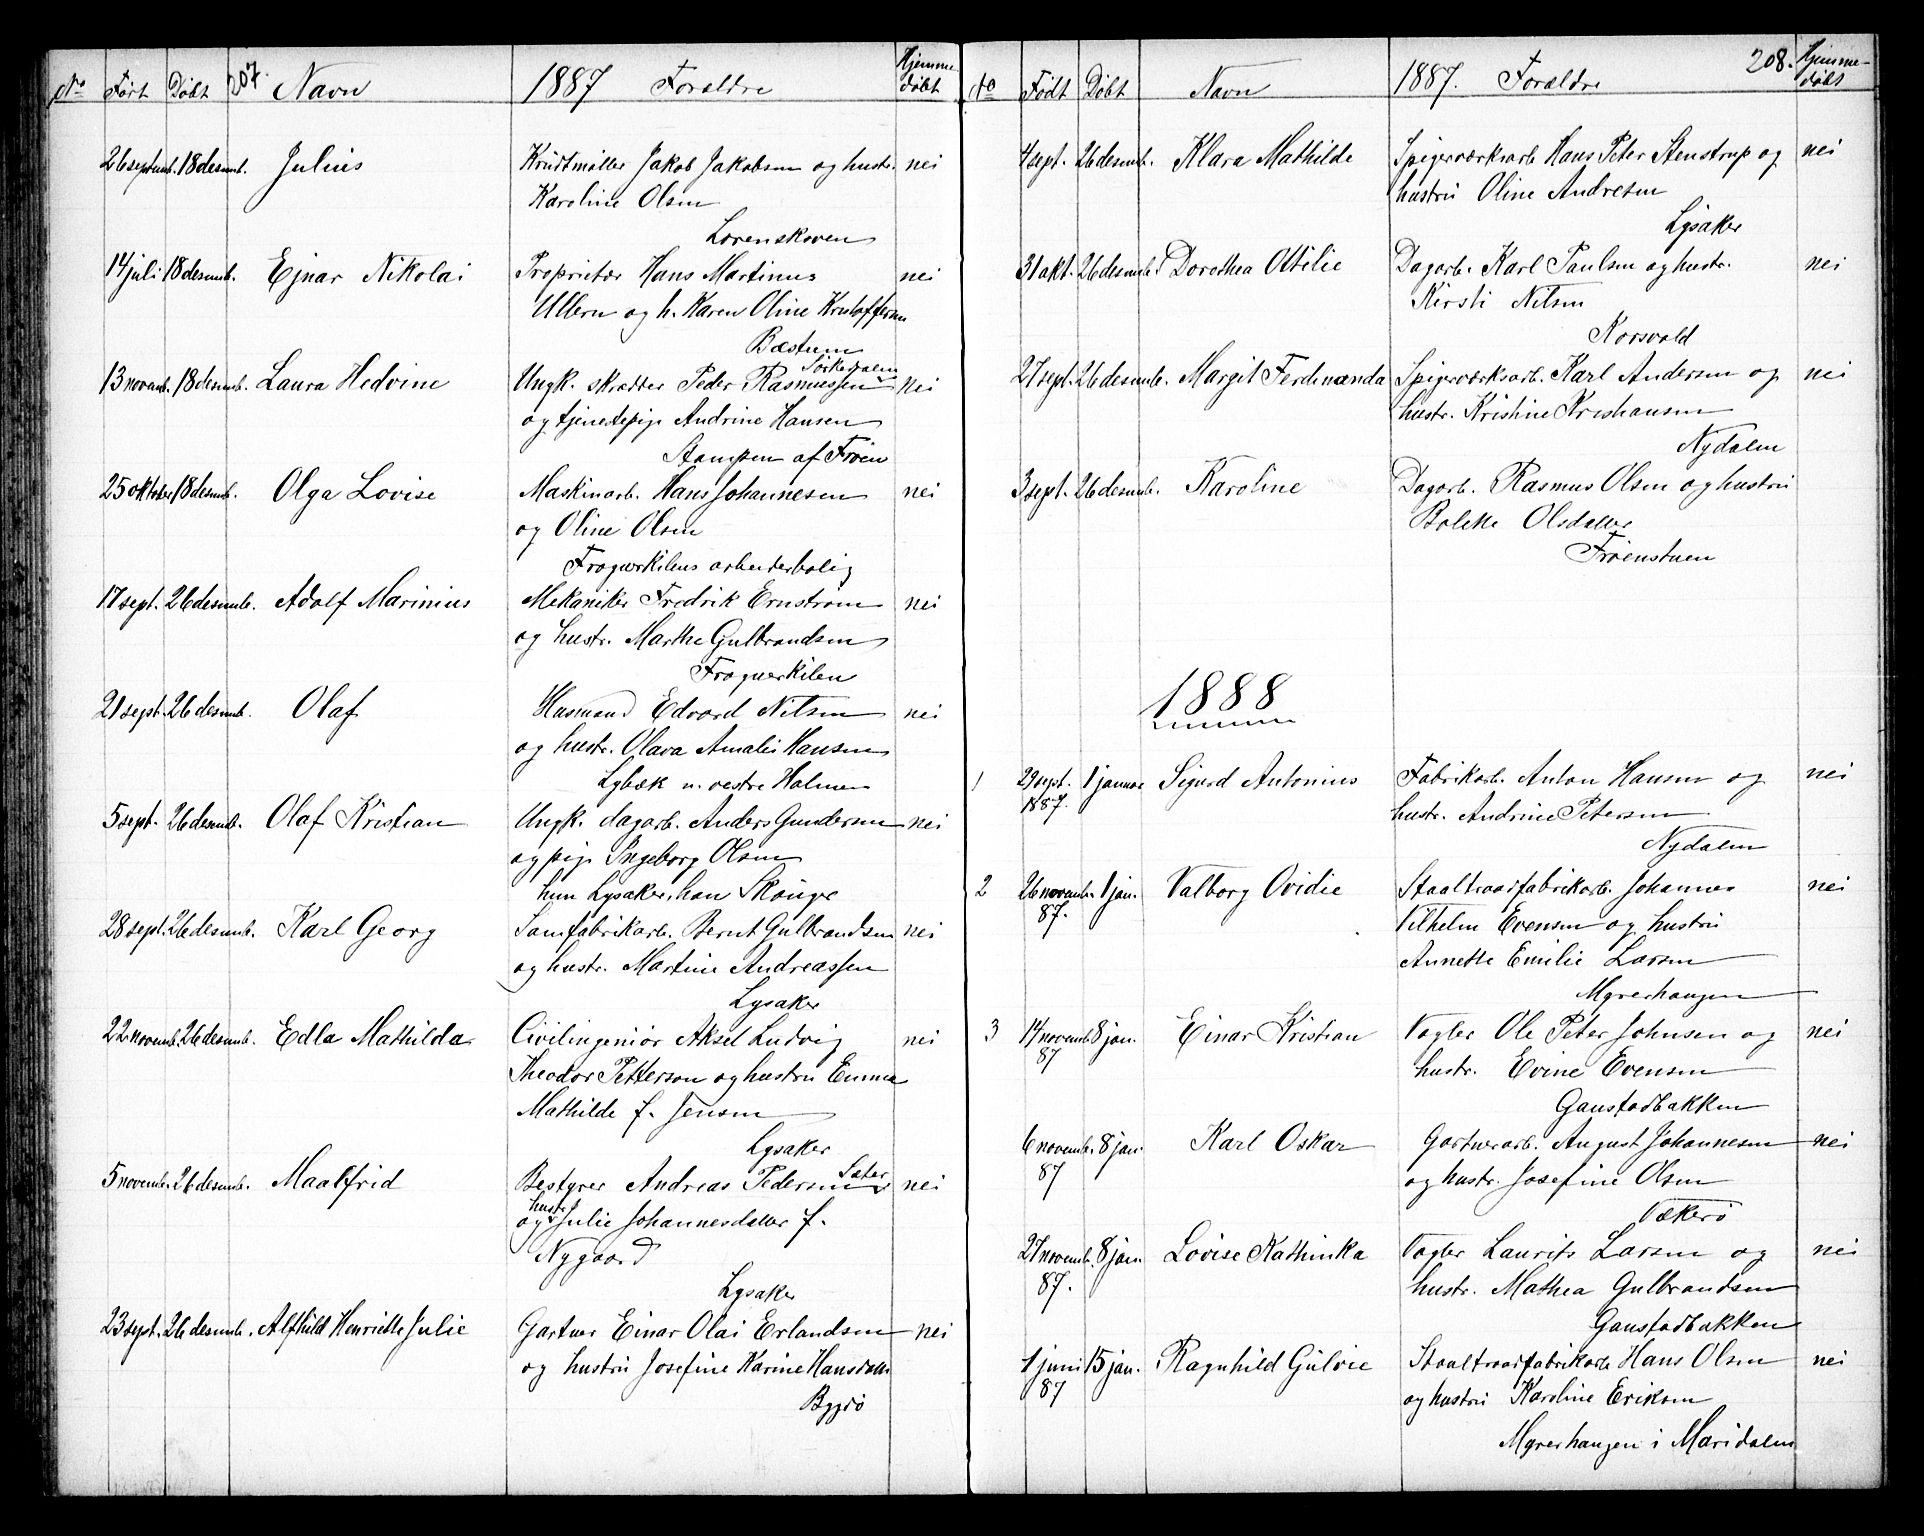 No Født Døbt 207. Navn 1887 Forældre Hjemme-
døbt
26 septemb. 18 desemb. Julius Krudtmøller Jakob Jakobsen og hustr. nei
Karoline Olsen
Lorenskoven
14 juli 18 desemb. Ejnar Nikolai Proprietær Hans Martinus nei
Ullern og h. Karen Oline Kristoffersen
Bestum
13 novemb. 18 desemb. Laura Hedvine Ungk. skrædder Peder Rasmussen Sørkedalen nei
og tjenestepige Andrine Hansen
Stampen af Frøen
25 oktober 18 desemb. Olga Lovise Maskinarb. Hans Johannesen nei
og Oline Olsen
Frognerkilens arbeiderbolig
17 sept. 26 desemb. Adolf Marinius Mekaniker Fredrik Ernstrøm nei
og hustr. Marthe Gulbrandsen
Frognerkilen
21 sept. 26 desemb. Olaf Husmand Edvard Nilsen nei
og hustr. Olava Amalie Hansen
Lybæk u. vestre Holmen
5 sept. 26 desemb. Olaf Kristian Ungk. dagarb. Anders Gundersen nei
og pige Ingeborg Olsen
hun Lysaker, han Skøuger
28 sept. 26 desemb. Karl Georg Sømfabrikarb. Bernt Gulbrandsen nei
og hustr. Martine Andreassen
Lysaker
22 novemb. 26 desemb. Edla Mathilda Civilingeniør Aksel Ludvig nei
Theodor Petterson og hustru Emma
Mathilde f. Jensen
Lysaker
5 novemb. 26 desemb. Maalfrid Bestyrer Andreas Pedersen Sæter nei
og hustr. Julie Johannesdatter f.
Nygaard
Lysaker
23 sept. 26 desemb. Alfhild Henriette Julie Gartner Einar Olai Erlandsen nei
og hustru Josefine Karine Hansdatter
Bygdø
No Født Døbt Navn 1887. Forældre 208. Hjemme-
døbt
4 sept. 26 desemb. Klara Mathilde Spigerværksarb. Hans Peter Stenstrup og nei
hustru Oline Andresen
Lysaker
31 okt. 26 desemb. Dorothea Ottilie Dagarb. Karl Paulsen og hustr. nei
Kirsti Nilsen
Korsvold
27 sept. 26 desemb. Margit Ferdinanda Spigerværksarb. Karl Andersen og nei
hustr. Kristine Kristiansen
Nydalen
3 sept. 26 desemb. Karoline Dagarb. Rasmus Olsen og hustru
Bolette Olsdatter
Frøenstuen
1888
1 29 sept. 1 januar Sigurd Antonius Fabrikarb. Anton Hansen og nei
1887. hustr. Andrine Petersen
Nydalen
2 26 novemb. 1 jan. Valborg Ovidie Staaltraadfabrikarb. Johannes nei
87. Vilhelm Evensen og hustru
Annette Emilie Larsen
Myrerhaugen
3 14 novemb. 8 jan. Einar Kristian Vogter Ole Peter Johnsen og nei
87 hustr. Evine Evensen
Gaustadbakken
6 novemb. 8 jan. Karl Oskar Gartnerarb. August Johannesen nei
87 og hustr. Josefine Olsen
Vækerø
27 novemb. 8 jan. Lovise Kathinka Vogter Laurits Larsen og nei
87. hustr. Mathea Gulbrandsen
Gaustadbakken
1 juni 15 jan. Ragnhild Gulvie Staaltraadfabrikarb. Hans Olsen nei
87 og hustru Karoline Eriksen
Myrerhaugen i Maridalen